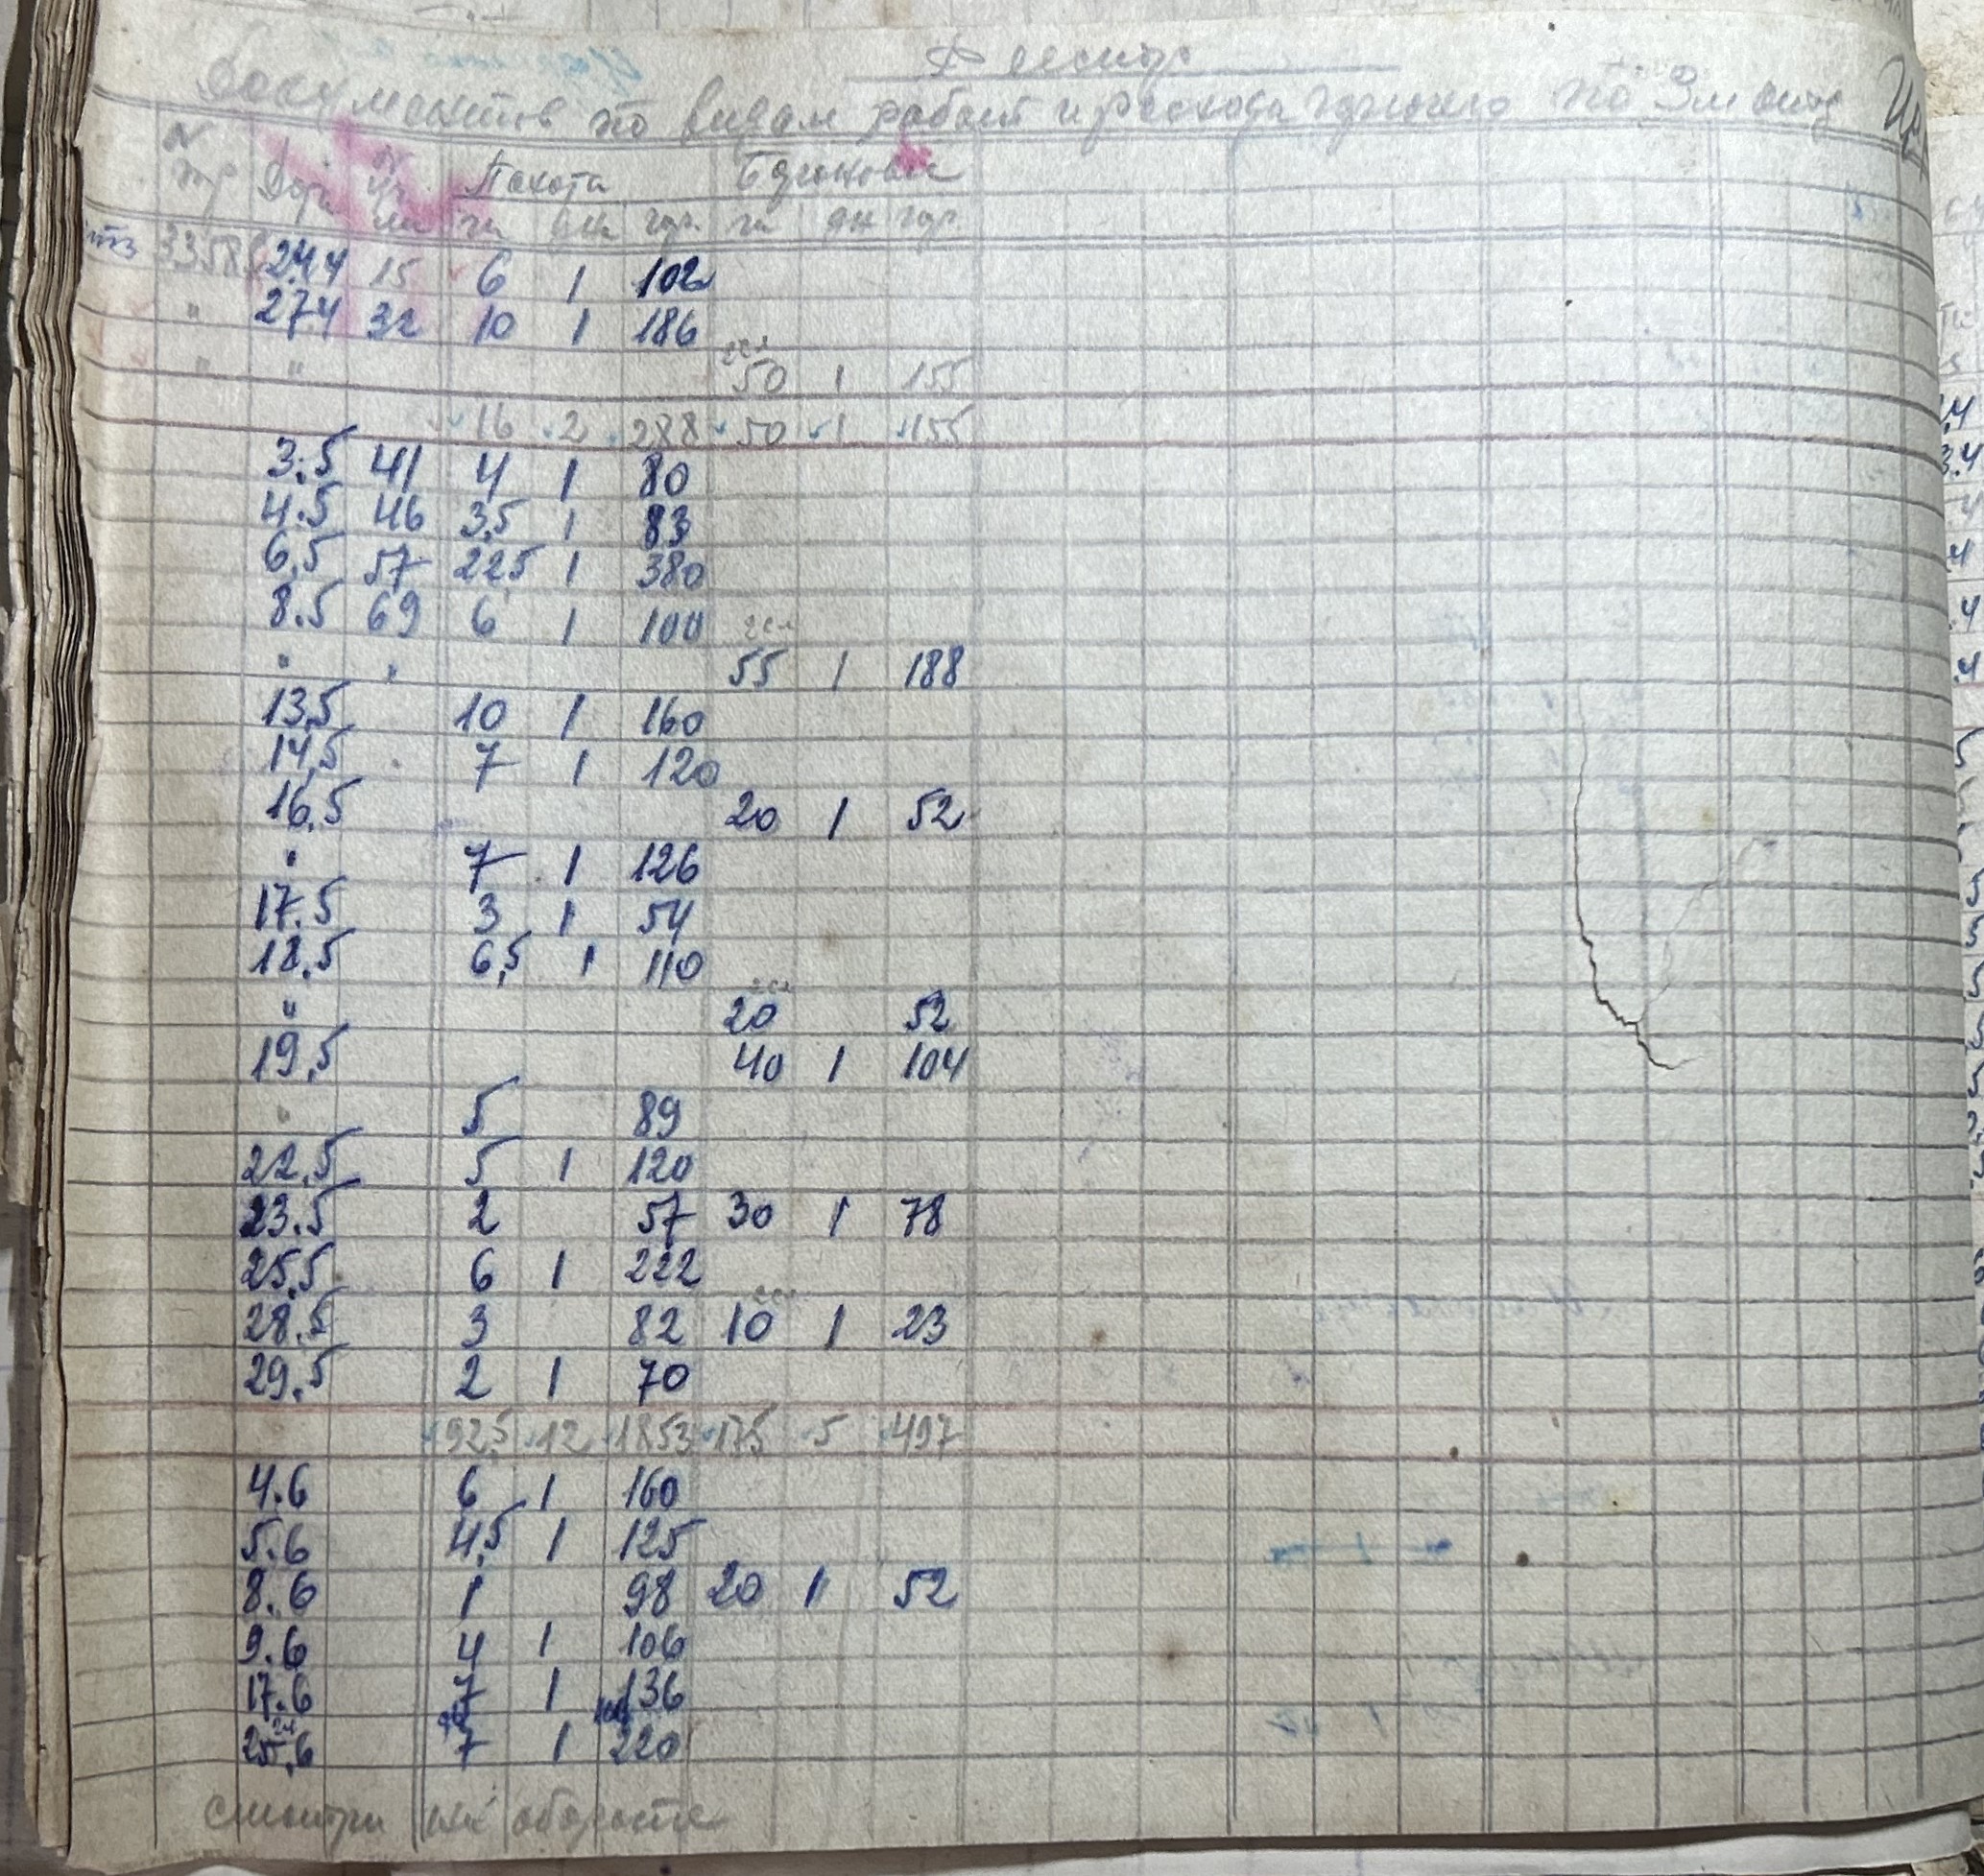 Реестр
Документов по видам работ и расхода горючего по 3 м отд
N тр Дата N уч ли Пахота Бороновка
га дн гор. га дн гор.
3358 24.4 15 6 1 102
" 27.4 32 10 1 186
" " 50 1 155
16 2 288 50 1 155
3.5 41 4 1 80
4.5 46 3,5 1 83
6.5 57 22,5 1 380
8.5 69 6 1 100
" " 55 1 188
13.5 10 1 160
14.5 7 1 120
16.5 20 1 52
" 7 1 126
17.5 3 1 54
18.5 6,5 1 110
" 20 52
19.5 40 1 104
" 5 89
22.5 5 1 120
23.5 2 57 30 1 78
25.5 6 1 222
28.5 3 82 10 1 23
29.5 2 1 70
92,5 12 1853 175 5 497
4.6 6 1 160
5.6 4,5 1 125
8.6 1 98 20 1 52
9.6 4 1 106
17.6 7 1 136
25.6 7 1 220
смотри на обороте